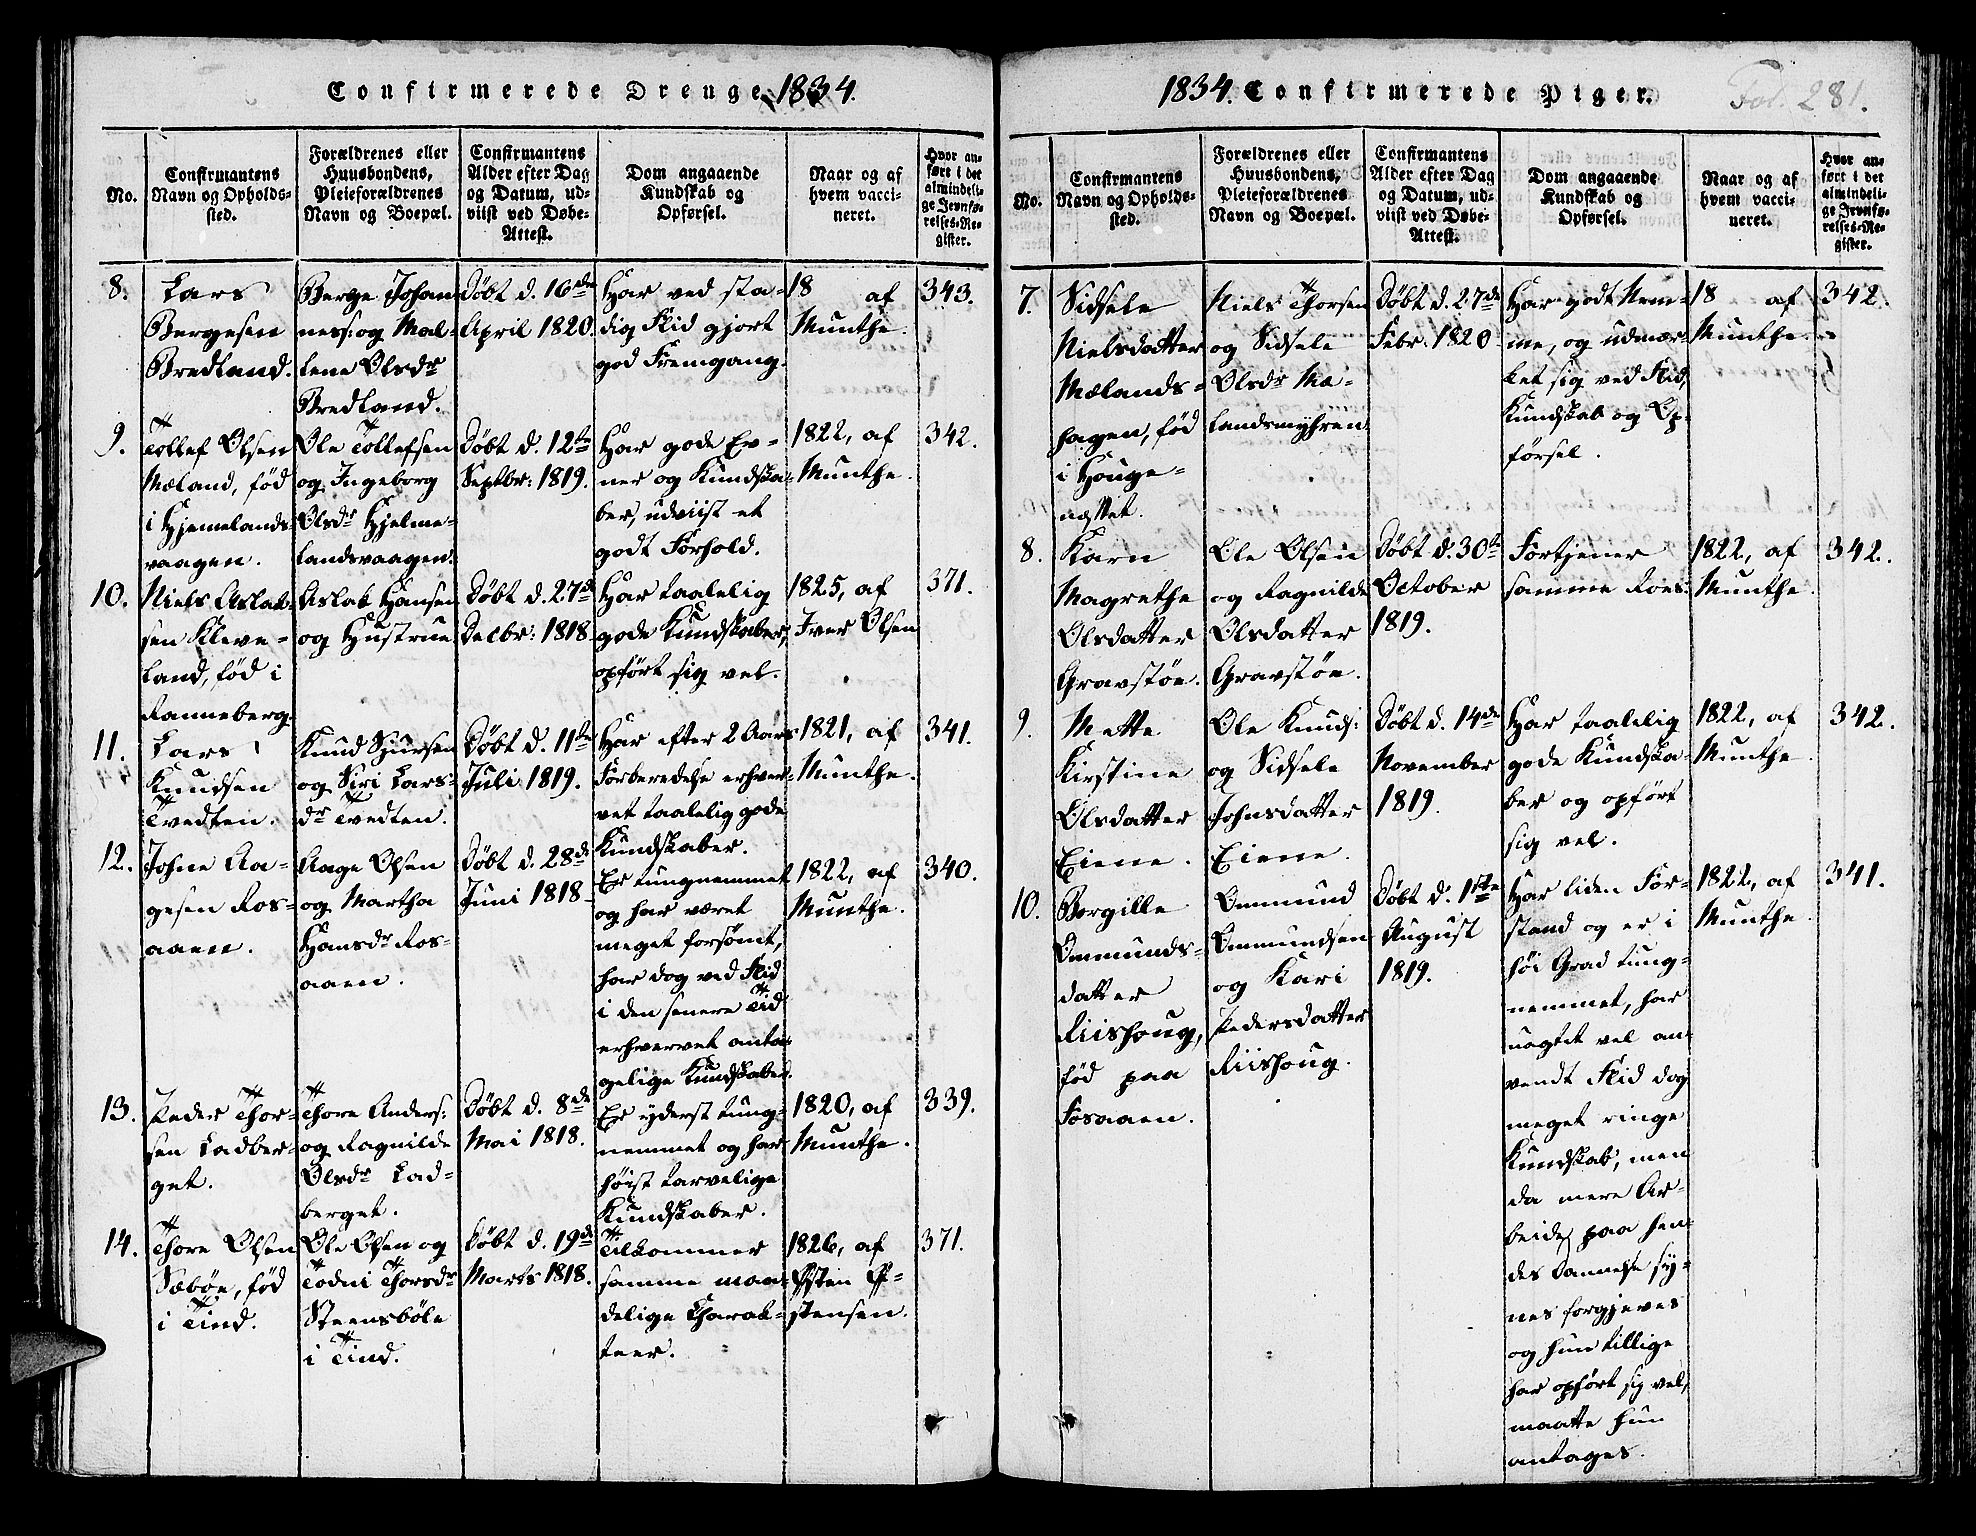 Confirmerede Drenge 1834.
No.
Confirmantens
Navn og Opholds-
sted.
Forældrenes eller
Huusbondens,
Pleieforældrenes
Navn og Boepæl.
Confirmantens
Alder efter Dag
og Datum, ud-
viist ved Døbe-
Attest.
Dom angaaende
Kundskab og
Opførsel.
Naar og af
hvem vacci-
neret.
Hvor an-
ført i det
almindeli-
ge Jevnfø-
relses-Re-
gister.
8.
Lars
Bergesen
Bredland.
Berge Johan
ness: og Mal-
lene Olsdr
Bredland.
Døbt d. 16de
April 1820.
Har ved sta-
dig Flid gjort
god Fremgang.
18 af
Munthe.
343.
9.
Tollef Olsen
Mæland, fød
i Hjemelands-
vaagen.
Ole Tollefsen
og Ingeborg
Olsdr Hjelme-
landsvaagen.
Døbt d. 12te
Septbr: 1819.
Har gode Ev-
ner og Kundska-
ber, udviist et
godt Forhold.
1822, af
Munthe.
342.
10.
Niels Aslak-
sen Kleve-
land, fød i
Ranneberg.
Aslak Hansen
og Hustrue
Døbt d. 27de
Decbr: 1818
Har taalelig
gode Kundskaber,
opført sig vel.
1825, af
Iver Olsen
371.
11.
Lars
Knudsen
Tvedten.
Knud Sjursen
og Siri Lars-
dr Tvedten.
Døbt d. 11te
Juli 1819.
Har efter 2 Aars
Forberedelse erhver-
vet taalelig gode
Kundskaber.
1821, af
Munthe.
341.
12.
Johne Aa-
gesen Ros-
aaen.
Aage Olsen
og Martha
Hansdr Ros-
aaen.
Døbt d. 28de
Juni 1818
Er tungnemmet
og har været
meget forsømt,
har dog ved Flid
i den senere Tid
erhvervet anta-
gelige Kundskaber.
1822, af
Munthe.
340.
13.
Peder Thor-
sen Ladber-
get.
Thore Anders:
og Ragnilde
Olsdr Lad-
berget.
Døbt d. 8de
Mai 1818.
Er yderst tung-
nemmet og har
høist tarvelige
Kundskaber.
1820, af
Munthe.
339.
14.
Thore Olsen
Sæbøe, fød
i Tind.
Ole Olsen og
Todni Thorsdr
Steensbøle
i Tind.
Døbt d. 19de
Marts 1818.
Tilkommer
samme maa-
delige Charak-
teer.
1826, af
Østen Ø-
stensen.
371.
1834. Confirmerede Piger.
Fol. 281.
No.
Confirmantens
Navn og Opholds-
sted.
Forældrenes eller
Huusbondens,
Pleieforældrenes
Navn og Boepæl.
Confirmantens
Alder efter Dag
og Datum, ud-
viist ved Døbe-
Attest.
Dom angaaende
Kundskab og
Opførsel.
Naar og af
hvem vacci-
neret.
Hvor an-
ført i det
almindeli-
ge Jevnfø-
relses-Re-
gister.
7.
Sidsele
Nielsdatter
Mælands-
hagen, fød
i Houge-
næsset.
Niels Thorsen
og Sidsele
Olsdr Mæ-
landsmyhren
Døbt d. 27de
Febr. 1820
Har godt Nem-
me, og udmær-
ket sig ved Flid,
Kundskab og Op-
førsel.
18 af
Munthe.
342.
8.
Karn
Magrethe
Olsdatter
Gravstøe.
Ole Olsen
og Ragnilde
Olsdatter
Gravstøe.
Døbt d. 30te
October
1819.
Fortjener
samme Roes.
1822, af
Munthe.
342.
9.
Mette
Kirstine
Olsdatter
Eiene.
Ole Knuds:
og Sidsele
Johnsdatter
Eiene.
Døbt d. 14de
November
1819.
Har taalelig
gode Kundska-
ber og opført
sig vel.
1822, af
Munthe.
342.
10.
Bergille
Ommunds-
datter
Riishoug,
fød paa
Fosaaen.
Ommund
Ommundsen
og Kari
Pedersdatter
Riishoug.
Døbt d. 1ste
August
1819.
Har liden For-
stand og er i
høi Grad tung-
nemmet, har
uagtet vel an-
vendt Flid dog
meget ringe
Kundskab, men
da mere Ar-
beide paa hen-
des Dannelse sy-
nes forgjeves
og hun tillige
har opført sig vel,
maatte hun
antages.
1822, af
Munthe.
341.